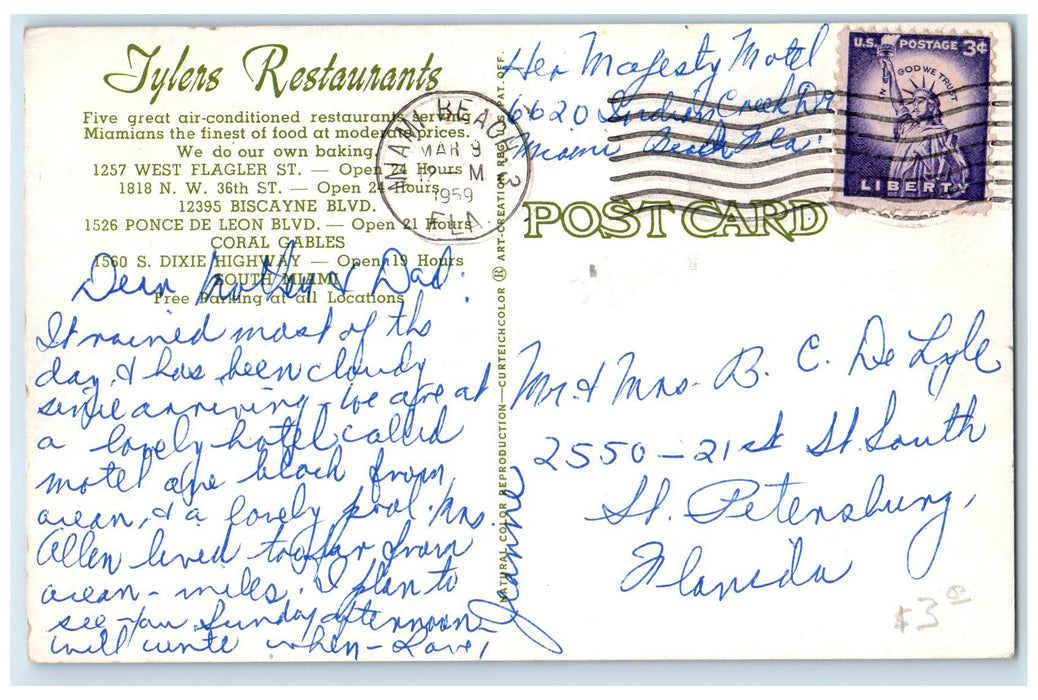 Tylers Restaurants
Five great air-conditioned restaurants serving
Miamians the finest of food at moderate prices.
We do our own baking
1257 WEST FLAGLER ST. — Open 24 Hours
1818 N. W. 36th ST. — Open 24 Hours
12395 BISCAYNE BLVD.
1526 PONCE DE LEON BLVD. — Open 21 Hours
CORAL GABLES
1560 S. DIXIE HIGHWAY — Open 19 Hours
SOUTH MIAMI
Free Parking at all Locations
Dear Mother & Dad:
It rained most of the
day, & has been cloudy
since arriving - we are at
a lovely hotel called
motel one block from
ocean, & a lovely pool. Mrs.
Allen lived too far from
ocean - miles. I plan to
see you Sunday afternoon -
will write when - Love,
Jeanne
MIAMI BEACH
MAR 9
M
1959
FLA.
NATURAL COLOR REPRODUCTION—CURTEICHCOLOR ® ART-CREATION REG. U.S. PAT. OFF.
Her Majesty Motel
6620 Indian Creek Dr
Miami Beach Fla.
U.S. POSTAGE 3¢
IN GOD WE TRUST
LIBERTY
POST CARD
Mr. & Mrs. B. C. De Lyle
2550 - 21st St. South
St. Petersburg,
Florida
$3.00